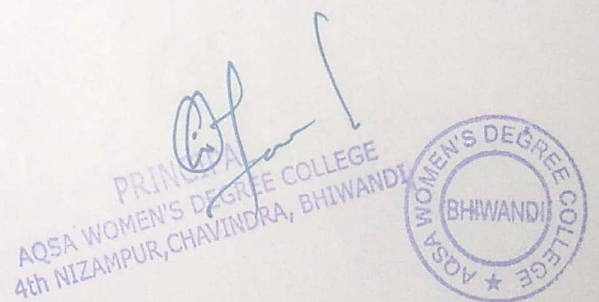 PRINCIPAL
AQSA WOMEN'S DEGREE COLLEGE
4th NIZAMPUR,CHAVINDRA, BHIWANDI
AQSA WOMEN'S DEGREE COLLEGE ★
BHIWANDI